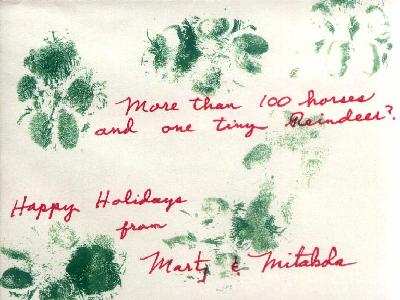 More than 100 horses
and one tiny Reindeer?
Happy Holidays
from
Marty & Mitakola